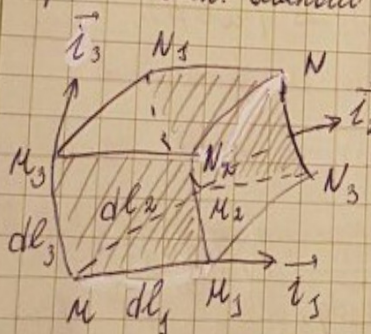 i₃
N₁
N
i₂
M₃
N₂
N₃
dl₂
M₂
dl₃
M
dl₁
M₁
i₁